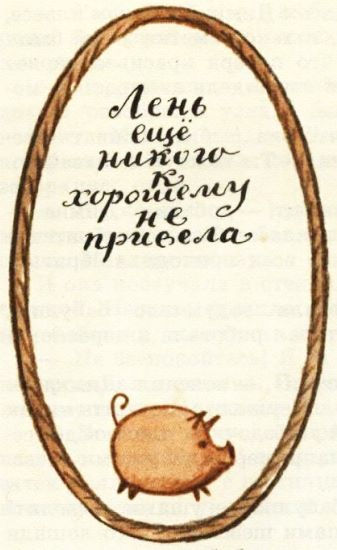 Лень
ещё
никого
к
хорошему
не
привела